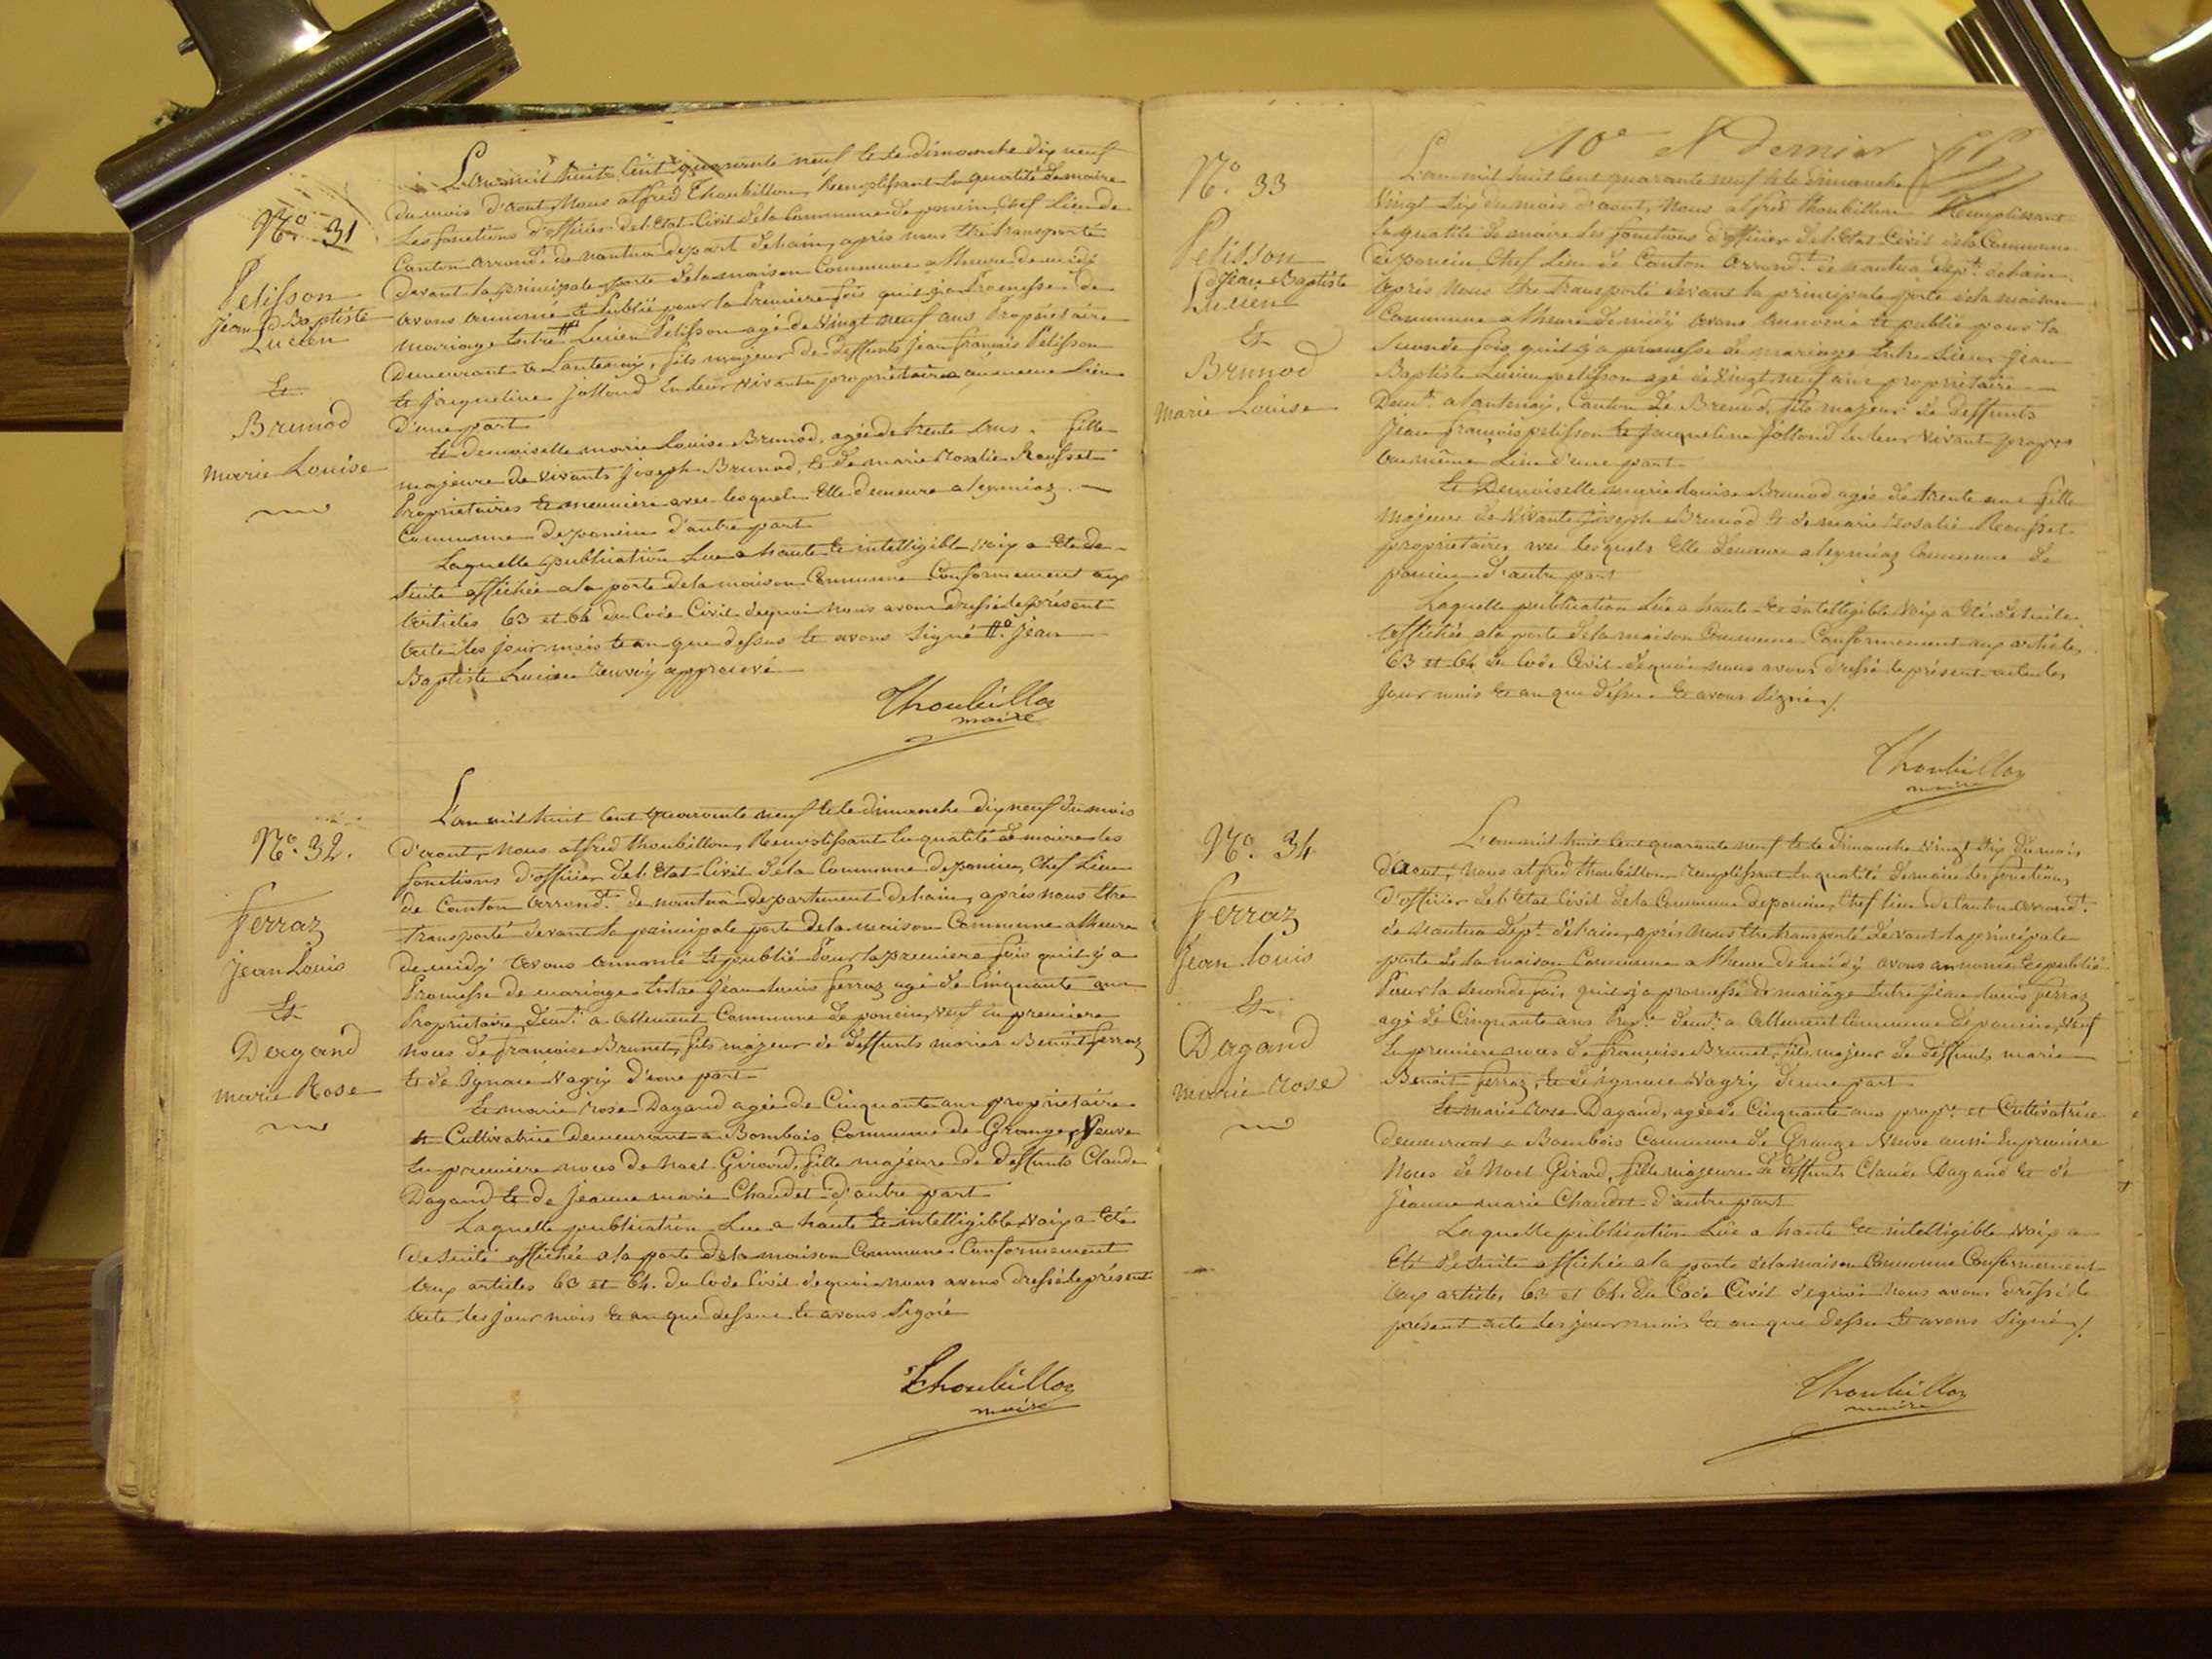 N° 31
Pelisson
jean Baptiste
Lucien
Et
Brunod
marie Louise
L'an mil huit Cent quarante neuf et le dimanche dix neuf
du mois d'aout, Nous alfred Thoubillon, Remplissant la qualité de maire
Les fonctions d'officier de l'Etat Civil de la Commune de poncin, Chef Lieu de
Canton arrond.t de nantua depart. de l'ain, après nous être transporté
devant la principale porte de la maison Commune a l'heure de midi
avons annoncé et Publié pour la Premiere fois qu'il y a Promesse de
mariage Entre # Lucien Pelisson agé de Vingt neuf ans Propriétaire
Demeurant a Lantenay, fils majeur de deffunts Jean françois Pelisson
et jacqueline jolland En leur vivants propriétaires au meme Lieu
d'une part
et demoiselle marie Louise Brunod, agée de trente ans, fille
majeure de vivants joseph Brunod, et de marie Rosalie Rousset
Propriétaires et meuniers avec lesquels Elle demeure a leymiaz
Commune de poncin d'autre part
Laquelle publication Lue a haute et intelligible voix a été de
suite affichée a la porte de la maison Commune Conformement aux
articles 63 et 64 du Code Civil de quoi nous avons dressé le présent
acte les jour mois et an que dessus et avons signé #° jean
Baptiste Lucien renvoy approuvé
Thoubillon
maire
N° 32.
ferraz
jean Louis
Et
Dagand
marie Rose
L'an mil huit Cent quarante neuf et le dimanche dix neuf du mois
d'aout, Nous alfred thoubillon, Remplissant la qualité de maire les
fonctions d'officier de l'Etat Civil de la Commune de poncin, Chef Lieu
de Canton arrond.t de nantua département de l'ain, après nous être
transporté devant la principale porte de la maison Commune a l'heure
de midy avons annoncé et publié Pour la premiere fois qu'il y a
Promesse de mariage Entre jean louis ferraz agé de Cinquante ans
Propriétaire dem.t a allement Commune de poncin, Veuf En premiere
noces de francoise Brunet, fils majeur de deffunts marie Benoit ferraz
et de Ignace Vagry d'une part
Et marie rose Dagand agée de Cinquante ans propriétaire
et Cultivatrice demeurant a Bombois Commune de Grange, Veuve
En premiere noces de Noel Girard, fille majeure de deffunts Claude
Dagand et de jeanne marie Chaudet d'autre part
Laquelle publication Lue a haute et intelligible voix a été
de suite affichée a la porte de la maison Commune Conformement
aux articles 63 et 64. du Code Civil de quoi nous avons dressé le présent
acte les jour mois et an que dessus et avons Signé
Thoubillon
maire
10e et Dernier
N° 33
Pelisson
Jean Baptiste
Lucien
Et
Brunod
Marie Louise
L'an mil huit Cent quarante neuf et le dimanche
Vingt six du mois d'aout, Nous alfred thoubillon Remplissant
la qualité de maire les fonctions d'officier de l'Etat Civil de la Commune
de poncin Chef Lieu de Canton arrond.t de nantua dép.t de l'ain
après Nous être transporté devant la principale porte de la maison
Commune a l'heure de midy avons annoncé et publié pour la
seconde fois qu'il y a promesse de mariage Entre sieur jean
Baptiste Lucien pelisson agé de Vingt neuf ans propriétaire
Dem.t a lantenay, Canton de Brenod, fils majeur de deffunts
Jean françois pelisson et Jacqueline jolland En leur vivant propres
au même Lieu d'une part
Et Demoiselle marie louise Brunod agée de trente ans fille
majeure de Vivants joseph Brunod et de marie rosalie Rousset
propriétaires avec lesquels Elle demeure a leymiaz Commune de
poncin d'autre part
Laquelle publication Lue a haute et intelligible Voix a été de suite
affichée a la porte de la maison Commune Conformement aux articles
63 et 64 du Code Civil de quoi nous avons dressé le présent acte les
jour mois et an que dessus et avons signé
Thoubillon
maire
N° 34
ferraz
Jean louis
Et
Dagand
marie rose
L'an mil huit Cent quarante neuf et le dimanche vingt six du mois
d'aout, Nous alfred thoubillon remplissant la qualité de maire les fonctions
d'officier de l'Etat Civil de la Commune de poncin, Chef lieu de Canton arrond.t
de Nantua dép.t de l'ain, après Nous être transporté devant la principale
porte de la maison Commune a l'heure de midy avons annoncé et publié
Pour la seconde fois qu'il y a promesse de mariage Entre jean louis ferraz
agé de Cinquante ans Prop.re dem.t a allement Commune de poncin, Veuf
En premiere noces de françoise Brunet, fils majeur de deffunts marie
Benoit ferraz, et de ignace Vagry d'une part
Et marie rose Dagand, agée de Cinquante ans prop.re et Cultivatrice
demeurant a Bombois Commune de Grange Veuve aussi En premiere
Noces de Noel Girard, fille majeure de deffunts Claude Dagand et de
jeanne marie Chaudet d'autre part
Laquelle publication Lue a haute et intelligible voix a
été de suite affichée a la porte de la maison Commune Conformement
aux articles 63 et 64. du Code Civil de quoi Nous avons dressé le
présent acte les jour mois et an que dessus et avons signé
Thoubillon
maire